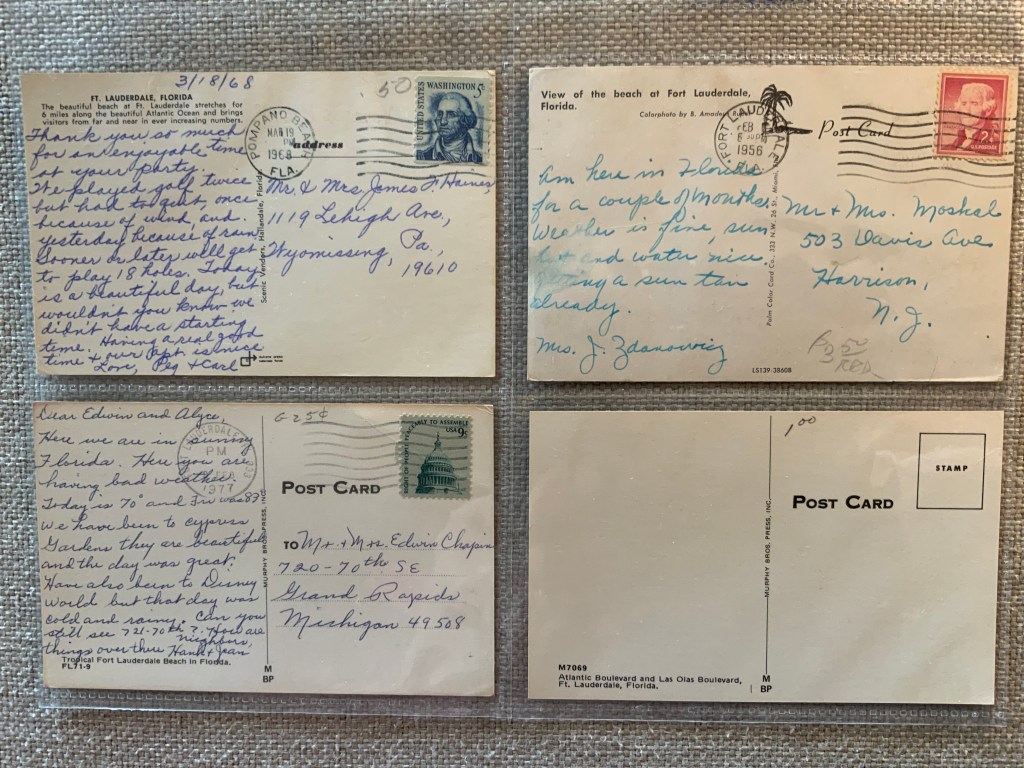 3/18/68
50
FT. LAUDERDALE, FLORIDA
The beautiful beach at Ft. Lauderdale stretches for
6 miles along the beautiful Atlantic Ocean and brings
visitors from far and near in ever increasing numbers.
Thank you so much
for an enjoyable time
at your party.
We played golf twice
but had to quit, once
because of wind, and
yesterday because of rain
Sooner or later will get
to play 18 holes. Today
is a beautiful day, but
wouldn't you know we
didn't have a starting
time. Having a real good
time & our apt. is nice
Love, Peg & Carl
Scenic Vendors, Hallandale, Florida
POMPANO BEACH
MAR 19
PM
1968
FLA.
address
UNITED STATES
WASHINGTON 5
Mr & Mrs James F Haines
1119 Lehigh Ave.,
Wyomissing, Pa,
19610
View of the beach at Fort Lauderdale,
Florida.
Colorphoto by B. Amadeu
FORT LAUDERDALE
FEB
1956
FLA.
Post Card
2¢
U.S. POSTAGE
Am here in Florida
for a couple of months.
Weather is fine, sun
hot and water nice.
a sun tan
already.
Mrs. J. Zdanowicz
Palm Color Card Co., 333 N.W. 26 St., Miami,
Mr & Mrs. Moshal
503 Davis Ave
Harrison,
N. J.
50
LS139-3860B
Dear Edwin and Alyce.
Here we are in sunny
Florida. Here you are
having bad weather.
Today is 70° and Fri was 83°
We have been to cypress
Gardens they are beautiful
and the day was great.
Have also been to Disney
World but that day was
cold and rainy. Can you
still see 721-70th?. How are
things over there neighbors,
Hank & Jean
Tropical Fort Lauderdale Beach in Florida.
FL71-9
LAUDERDALE
PM
1977
MURPHY BROS. PRESS, INC.
M
BP
G 25¢
PEACEABLY TO ASSEMBLE
USA 9c
POST CARD
TO Mr. & Mrs. Edwin Chapin
720-70th SE
Grand Rapids
Michigan 49508
1.00
STAMP
POST CARD
MURPHY BROS. PRESS, INC.
M7069
Atlantic Boulevard and Las Olas Boulevard,
Ft. Lauderdale, Florida.
M
BP